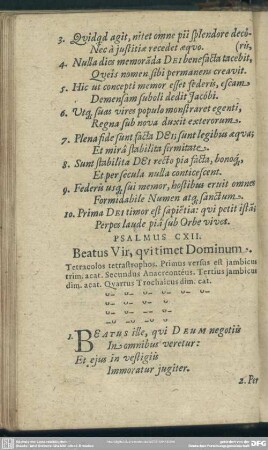 3. Quidqd agit, nitet omne pii splendore decō-
Nec à justitiæ recedet æquo. (ris,
4. Nulla dies memorāda DEI benefacta tacebit,
Queis nomen sibi permanens creavit.
5. Hic ut concepti memor esset fœderū, escam
Demensam suboli dedit Jacobi.
6. Utq́ suas vires populo monstraret egenti,
Regna sub nova duxit exterorum.
7. Plena fide sunt facta DEI: sunt legibus æqua;
Et mirâ stabilita firmitate.
8. Sunt stabilita DEI recto pia facta, bonoq́,
Et per secula nulla conticescent.
9. Federū usq́ sui memor, hostibus eruit omnes
Formidabile Numen atq́ sanctum.
10. Prima DEI timor est sapiētia: qui petit istā;
Perpes laude piâ sub Orbe vivet.
PSALMUS CXII.
Beatus Vir, qui timet Dominum.
Tetracolos tetrastrophos. Primus versus est jambicus
trim. acat. Secundus Anacreonteus. Tertius jambicus
dim. acat. Quartus Trochaicus dim. cat.
1. BEATUS ille, qui DEUM negotiis
In omnibus veretur:
Et ejus in vestigiis
Immoratur jugiter.
2. Per